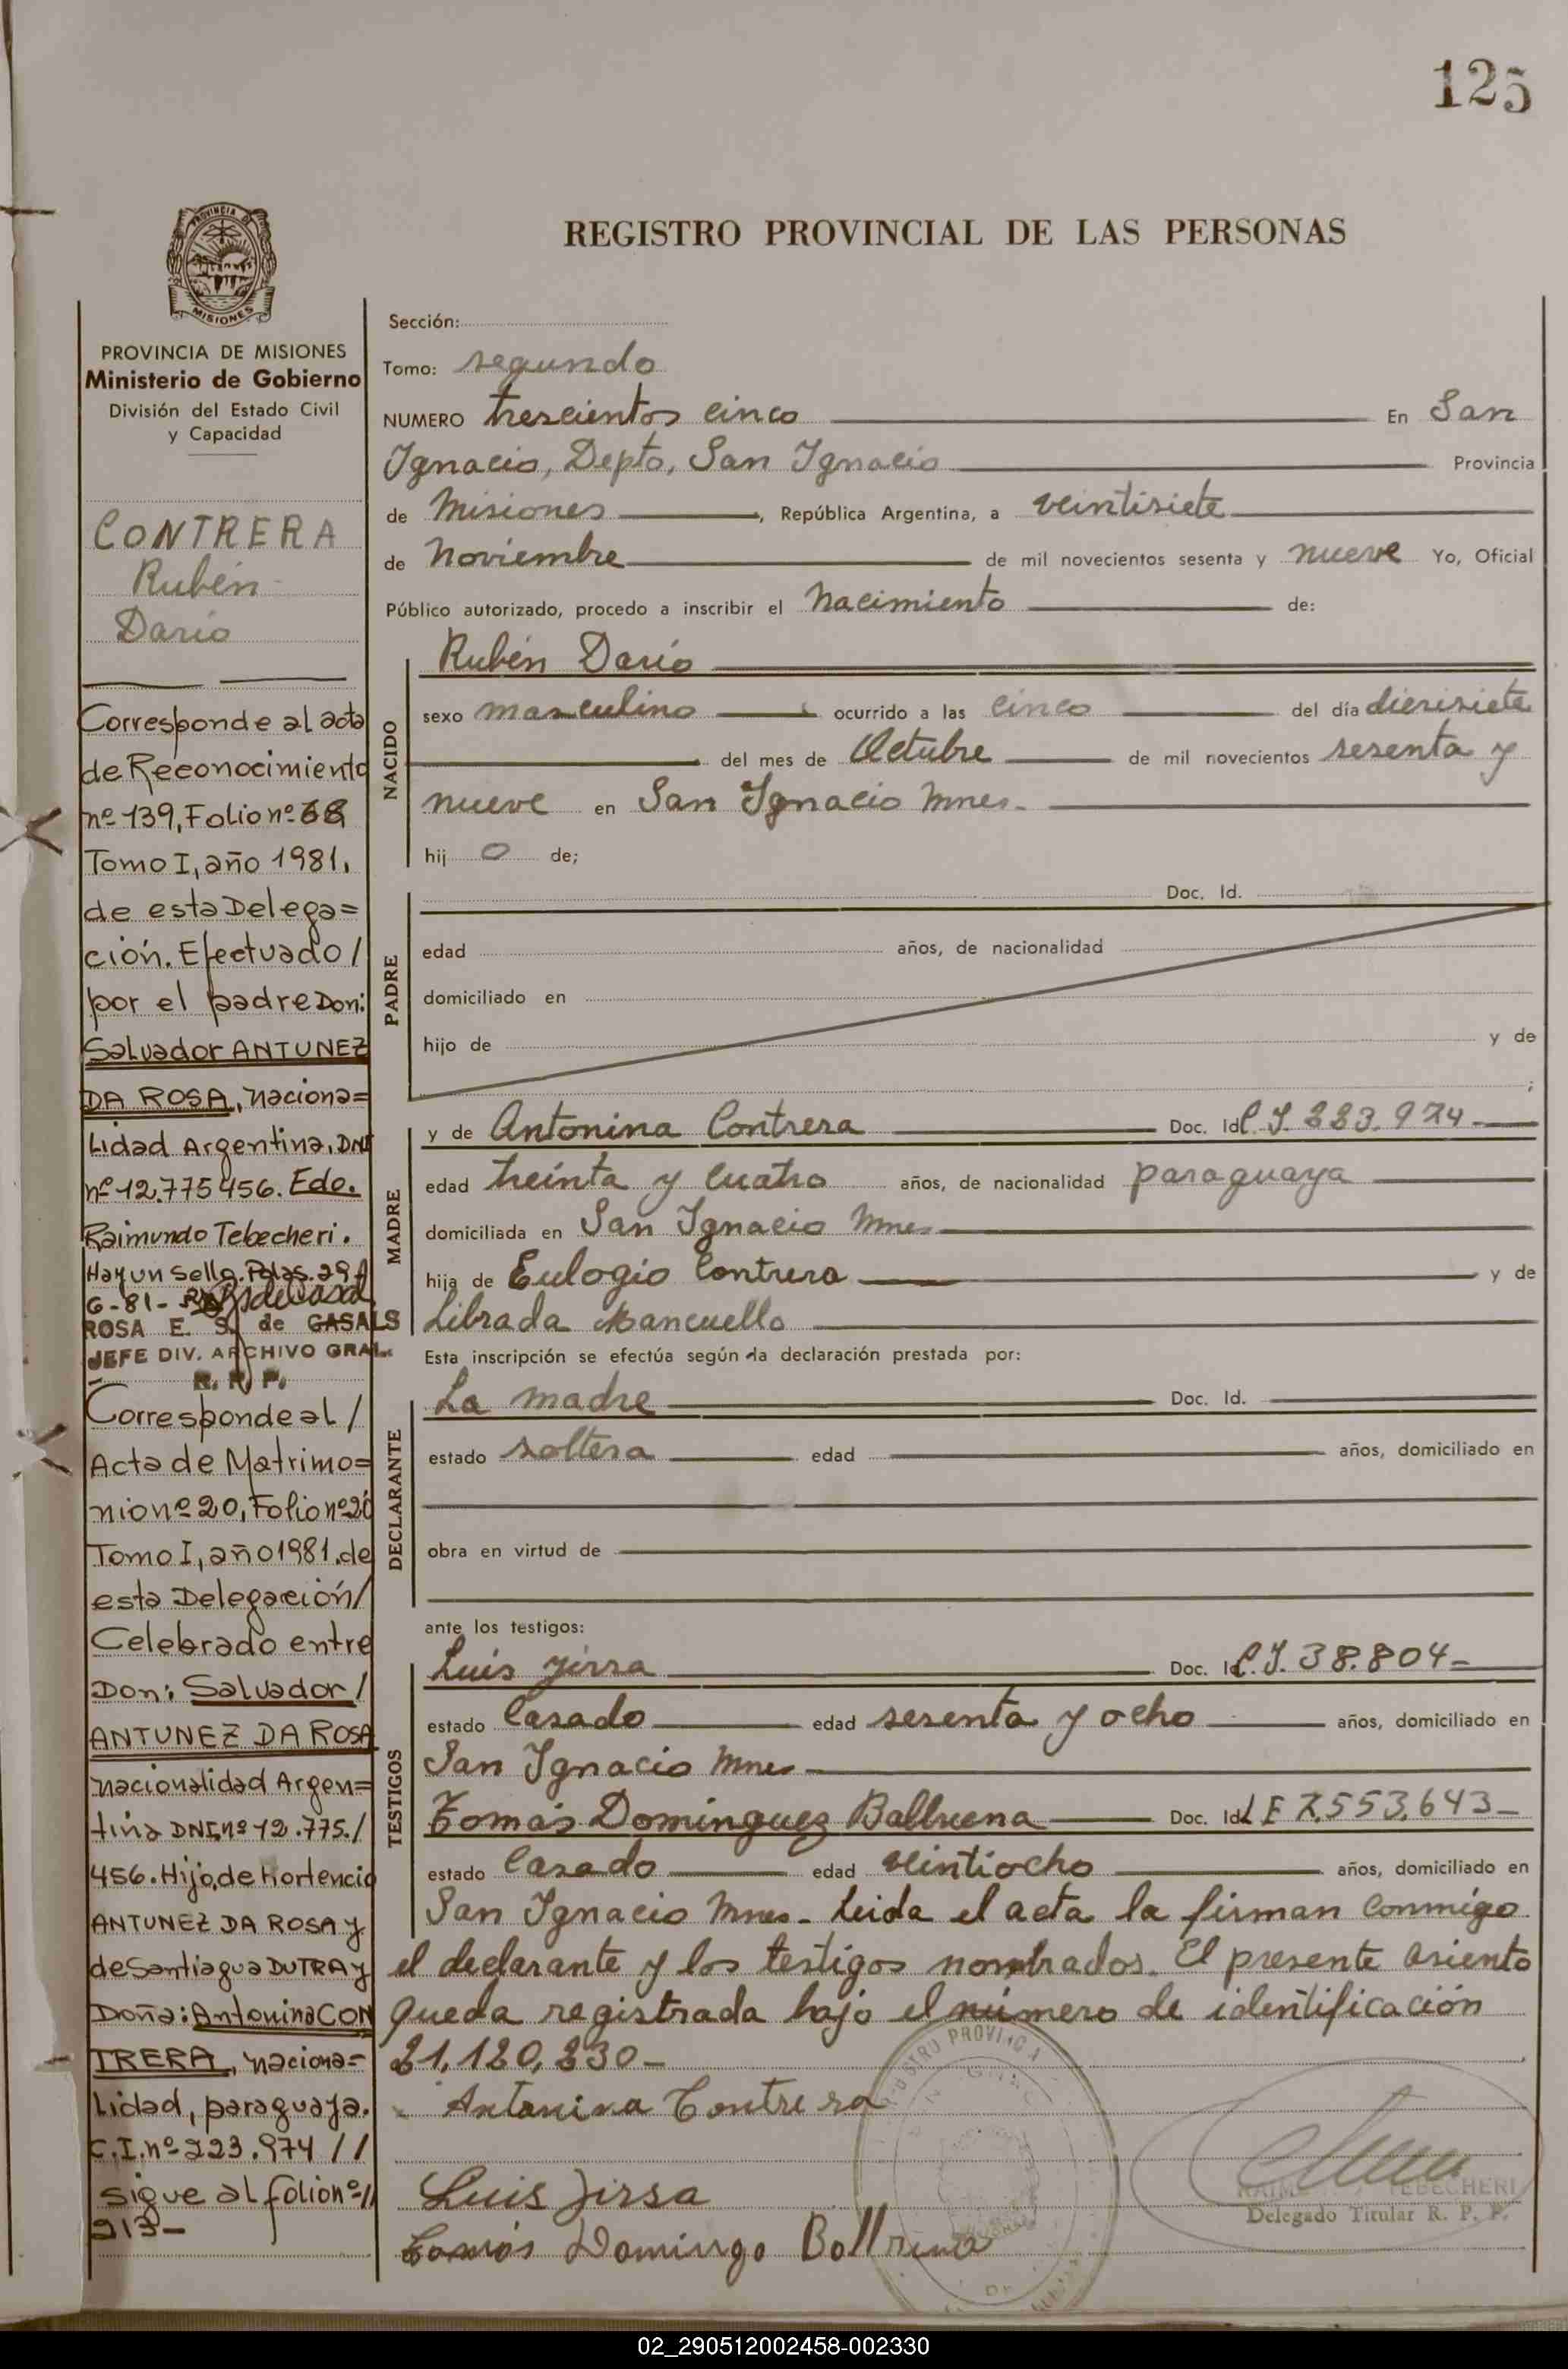 125
REGISTRO PROVINCIAL DE LAS PERSONAS
PROVINCIA DE MISIONES
Ministerio de Gobierno
División del Estado Civil
y Capacidad
CONTRERA
Rubén
Dario
Corresponde al acta
de Reconocimiento
nº 139, Folio nº 68
Tomo I, año 1981.
de esta Delega=
ción. Efectuado /
por el padre Don:
Salvador ANTUNEZ
DA ROSA, naciona=
lidad Argentina, DNI
nº 12.775456. Fdo.
Raimundo Tebecheri.
Hay un Sello. Pdas. 29/
6-81-
ROSA E. S. de CASALS
JEFE DIV. ARCHIVO GRAL.
R. P. P.
Corresponde al /
Acta de Matrimo=
nio nº 20, Folio nº 20
Tomo I, año 1981. de
esta Delegación/
Celebrado entre
Don: Salvador /
ANTUNEZ DA ROSA
nacionalidad Argen=
tina DNI.nº 12.775./
456. Hijo, de Hortencio
ANTUNEZ DA ROSA y
de Santiagua DUTRA y
Doña: Antonina CON
TRERA, naciona=
lidad, paraguaya.
C.I. nº 223.974 //
sigue al folio nº//
213-
Sección:
Tomo: segundo
NUMERO trescientos cinco En San
Ignacio, Depto, San Ignacio Provincia
de Misiones, República Argentina, a veintisiete
de Noviembre de mil novecientos sesenta y nueve Yo, Oficial
Público autorizado, procedo a inscribir el Nacimiento de:
NACIDO
Rubén Dario
sexo masculino ocurrido a las cinco del día diesisiete
del mes de Octubre de mil novecientos sesenta y
nueve en San Ignacio Mnes-
hij o de;
PADRE
Doc. Id.
edad años, de nacionalidad
domiciliado en
hijo de y de
;
MADRE
y de Antonina Contrera Doc. Id C.I. 223.974-
edad treinta y cuatro años, de nacionalidad paraguaya
domiciliada en San Ignacio Mnes
hija de Eulogio Contrera y de
Librada Mancuello
Esta inscripción se efectúa según la declaración prestada por:
DECLARANTE
La madre Doc. Id.
estado soltera edad años, domiciliado en
obra en virtud de
ante los testigos:
TESTIGOS
Luis Jirsa Doc. Id C.I. 38.804-
estado Casado edad sesenta y ocho años, domiciliado en
San Ignacio Mnes
Tomás Dominguez Balbuena Doc. Id L E 7.553.643-
estado Casado edad veintiocho años, domiciliado en
San Ignacio Mnes- Leida el acta la firman conmigo
el declarante y los testigos nombrados. El presente asiento
queda registrada bajo el número de identificación
21.120.230-
Antonina Contrera
Luis Jirsa
Tomás Domingo
TEBECHERI
Delegado Titular R. P. P.
02_290512002458-002330